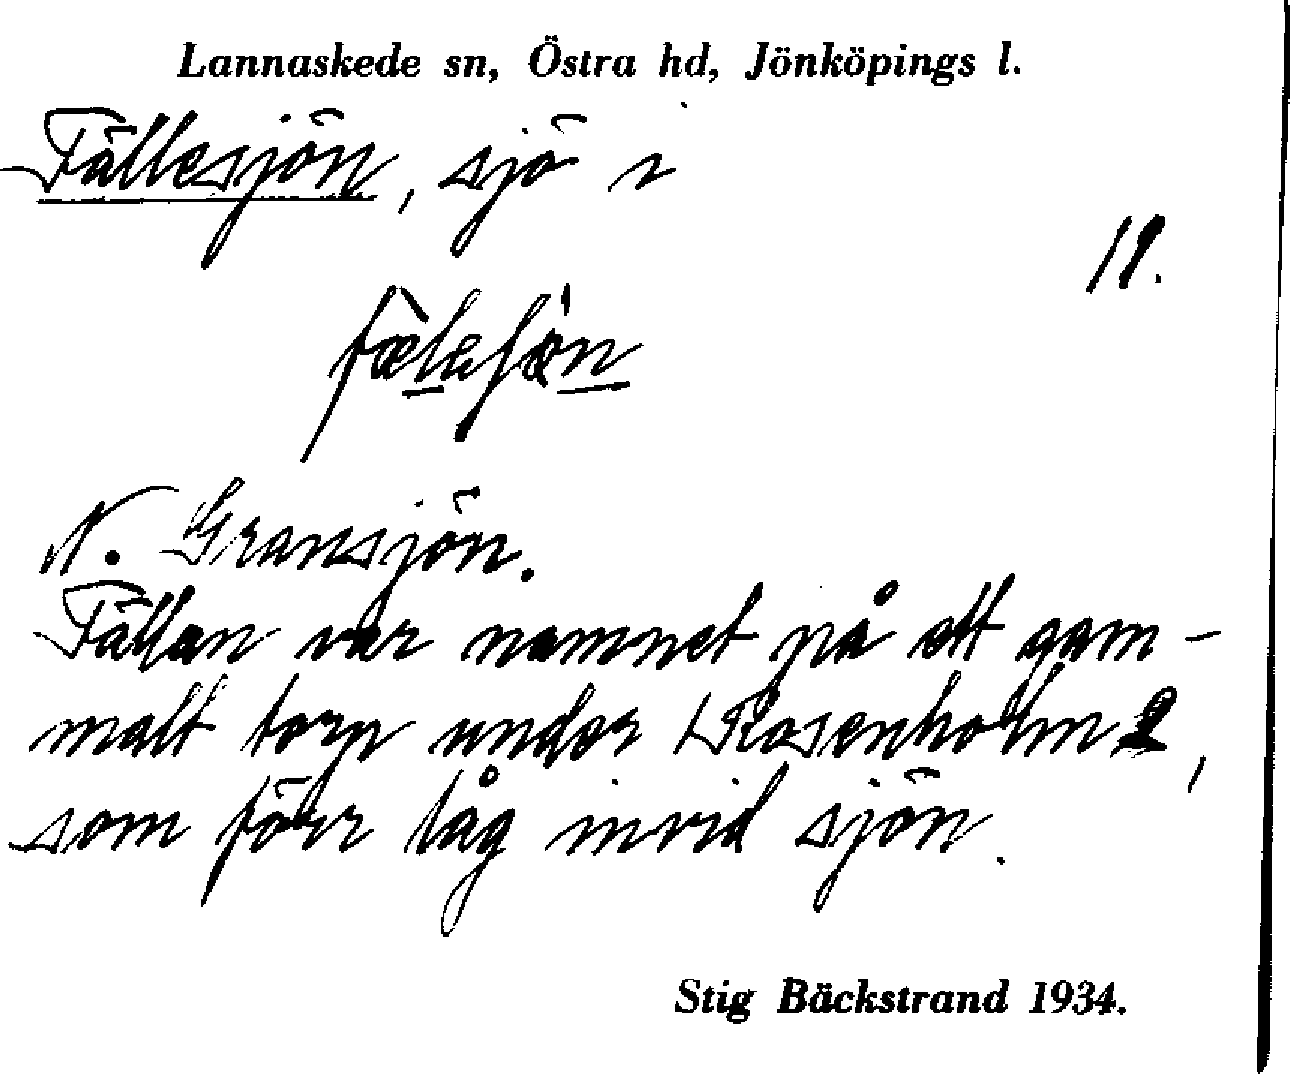 Lannaskede sn, Östra hd, Jönköpings l.
Fällesjön, sjö i
19.
N. Gransjön.
Fällan var namnet på ett gam-
malt torp under Rosenholm 2,
som förr låg invid sjön.
Stig Bäckstrand 1934.